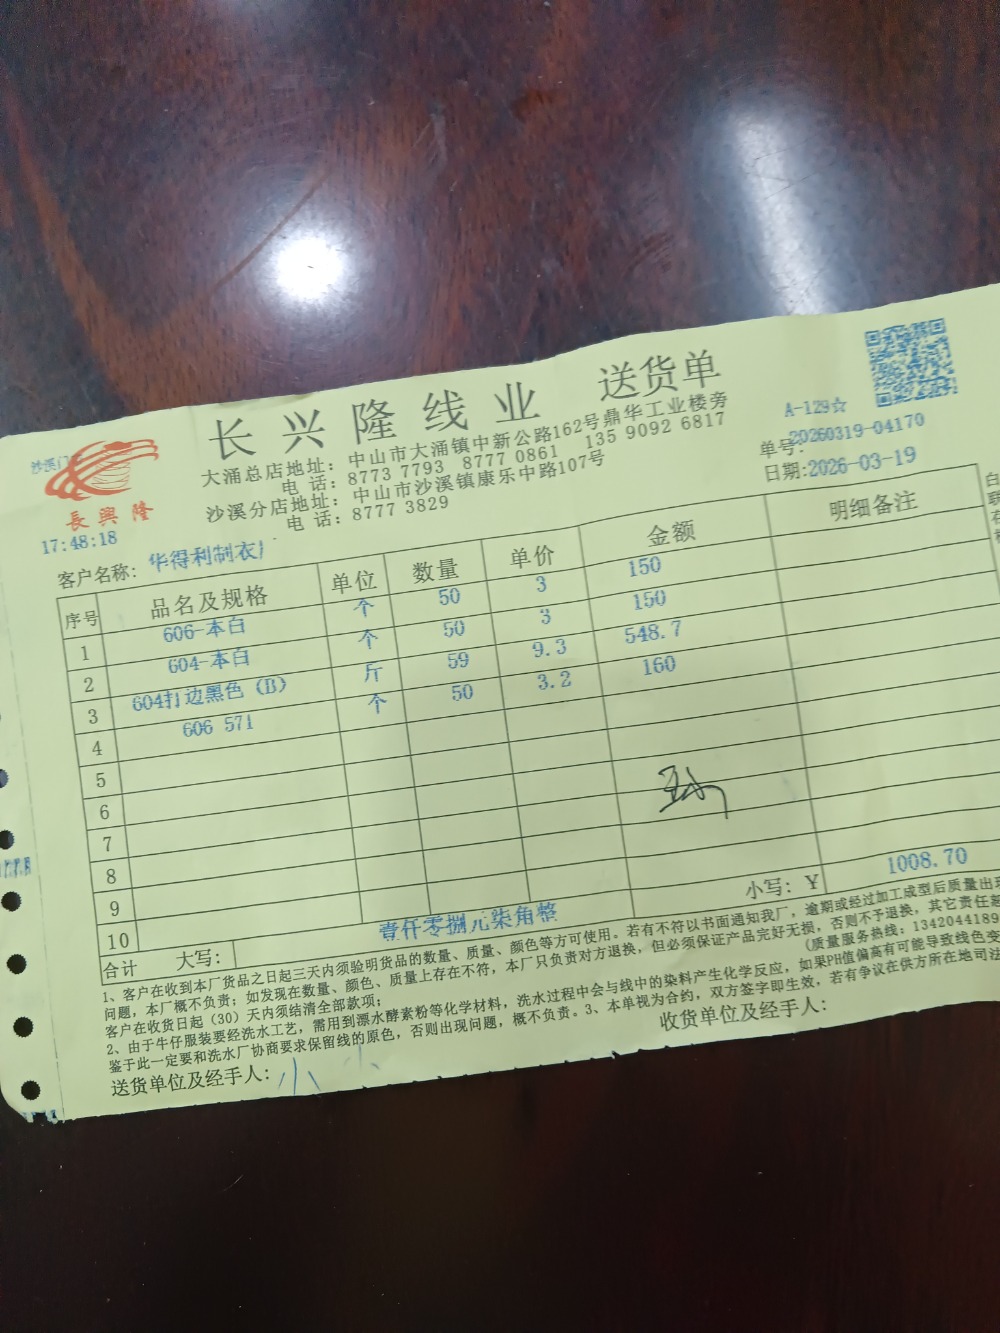 长兴隆线业 送货单
大涌总店地址：中山市大涌镇中新公路162号鼎华工业楼旁
电 话：8773 7793 8777 0861 135 9092 6817
沙溪分店地址：中山市沙溪镇康乐中路107号
电 话：8777 3829
A-129☆
单号：20260319-04170
日期：2026-03-19
沙溪门
長興隆
17:48:18
客户名称：华得利制衣厂
序号 品名及规格 单位 数量 单价 金额 明细备注
1 606-本白 个 50 3 150
2 604-本白 个 50 3 150
3 604打边黑色（B） 斤 59 9.3 548.7
4 606 571 个 50 3.2 160
5
6
7
8
9
10
合计 大写：壹仟零捌元柒角整 小写：￥ 1008.70
1、客户在收到本厂货品之日起三天内须验明货品的数量、质量、颜色等方可使用。若有不符以书面通知我厂，逾期或经过加工成型后质量出现
问题，本厂概不负责；如发现在数量、颜色、质量上存在不符，本厂只负责对方退换，但必须保证产品完好无损，否则不予退换，其它责任超
客户在收货日起（30）天内须结清全部款项；
（质量服务热线：1342044189
2、由于牛仔服装要经洗水工艺，需用到漂水酵素粉等化学材料，洗水过程中会与线中的染料产生化学反应，如果PH值偏高有可能导致线色变
鉴于此一定要和洗水厂协商要求保留线的原色，否则出现问题，概不负责。3、本单视为合约，双方签字即生效，若有争议在供方所在地司法
送货单位及经手人：小
收货单位及经手人：